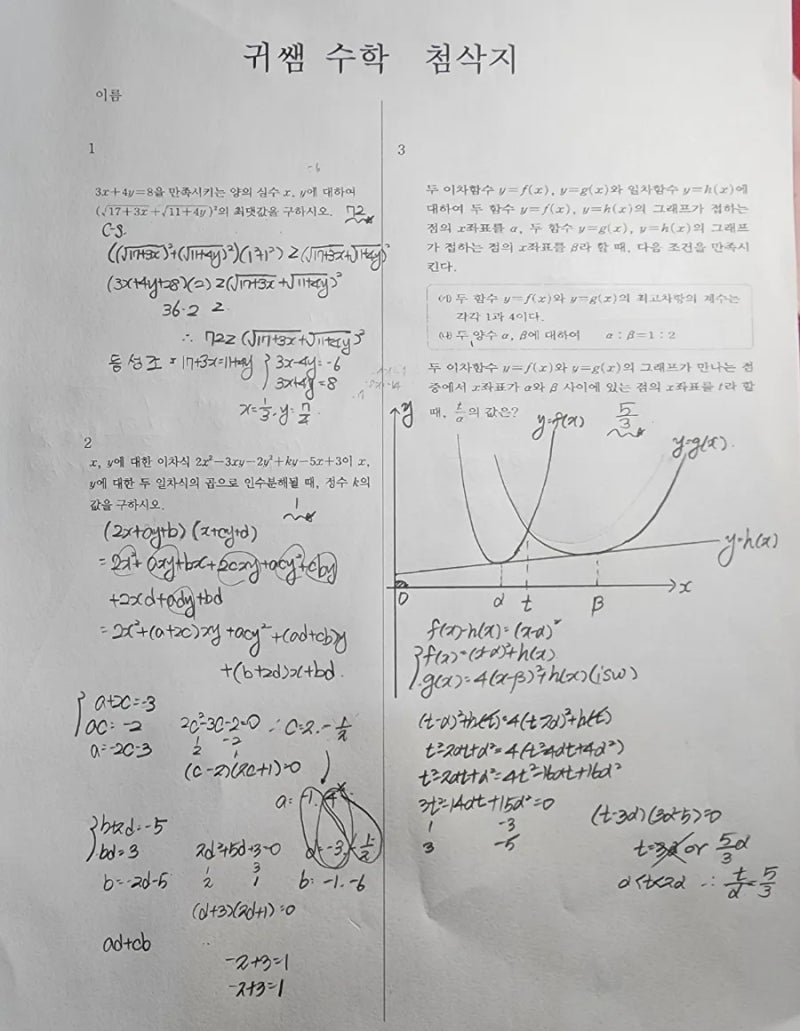 귀쌤 수학 첨삭지
이름
1
3x+4y=8을 만족시키는 양의 실수 x, y에 대하여
(√17+3x+√11+4y)²의 최댓값을 구하시오. 72
C-S.
((√17+3x)²+(√11+4y)²)(1²+1²) ≥ (√17+3x+√11+4y)²
(3x+4y+28)(2) ≥ (√17+3x+√11+4y)²
36·2 ≥
∴ 72 ≥ (√17+3x+√11+4y)²
등성조 : 17+3x=11+4y { 3x-4y=-6
3x+4y=8
x=1/3, y=7/4
2
x, y에 대한 이차식 2x²-3xy-2y²+ky-5x+3이 x,
y에 대한 두 일차식의 곱으로 인수분해될 때, 정수 k의
값을 구하시오. 1
(2x+ay+b)(x+cy+d)
=2x²+axy+bx+2cxy+acy²+cby
+2xd+ady+bd
=2x²+(a+2c)xy+acy²+(ad+cb)y
+(b+2d)x+bd.
{ a+2c=-3
ac=-2 2c²-3c-2=0 ∴ c=2, -1/2
a=-2c-3 1 -2
2 1
(c-2)(2c+1)=0
a=-1, 4
{ b+2d=-5
bd=3 2d²+5d+3=0 d=-3, -1/2
b=-2d-5 1 3
2 1 b=-1, -6
(d+3)(2d+1)=0
ad+cb
-2+3=1
-2+3=1
3
두 이차함수 y=f(x), y=g(x)와 일차함수 y=h(x)에
대하여 두 함수 y=f(x), y=h(x)의 그래프가 접하는
점의 x좌표를 α, 두 함수 y=g(x), y=h(x)의 그래프
가 접하는 점의 x좌표를 β라 할 때, 다음 조건을 만족시
킨다.
(가) 두 함수 y=f(x)와 y=g(x)의 최고차항의 계수는
각각 1과 4이다.
(나) 두 양수 α, β에 대하여 α : β=1 : 2
두 이차함수 y=f(x)와 y=g(x)의 그래프가 만나는 점
중에서 x좌표가 α와 β 사이에 있는 점의 x좌표를 t라 할
때, t/α의 값은? 5/3
y
y=f(x)
y=g(x).
y=h(x)
0 α t β x
f(x)-h(x)=(x-α)²
{ f(x)=(x-α)²+h(x)
g(x)=4(x-β)²+h(x)
(t-α)²+h(t)=4(t-2α)²+h(t)
t²-2αt+α²=4(t²-4αt+4α²)
t²-2αt+α²=4t²-16αt+16α²
3t²-14αt+15α²=0
1 -3
3 -5
(t-3α)(3α-5)=0
t=3α or 5/3α
α<t<2α ∴ t/α=5/3